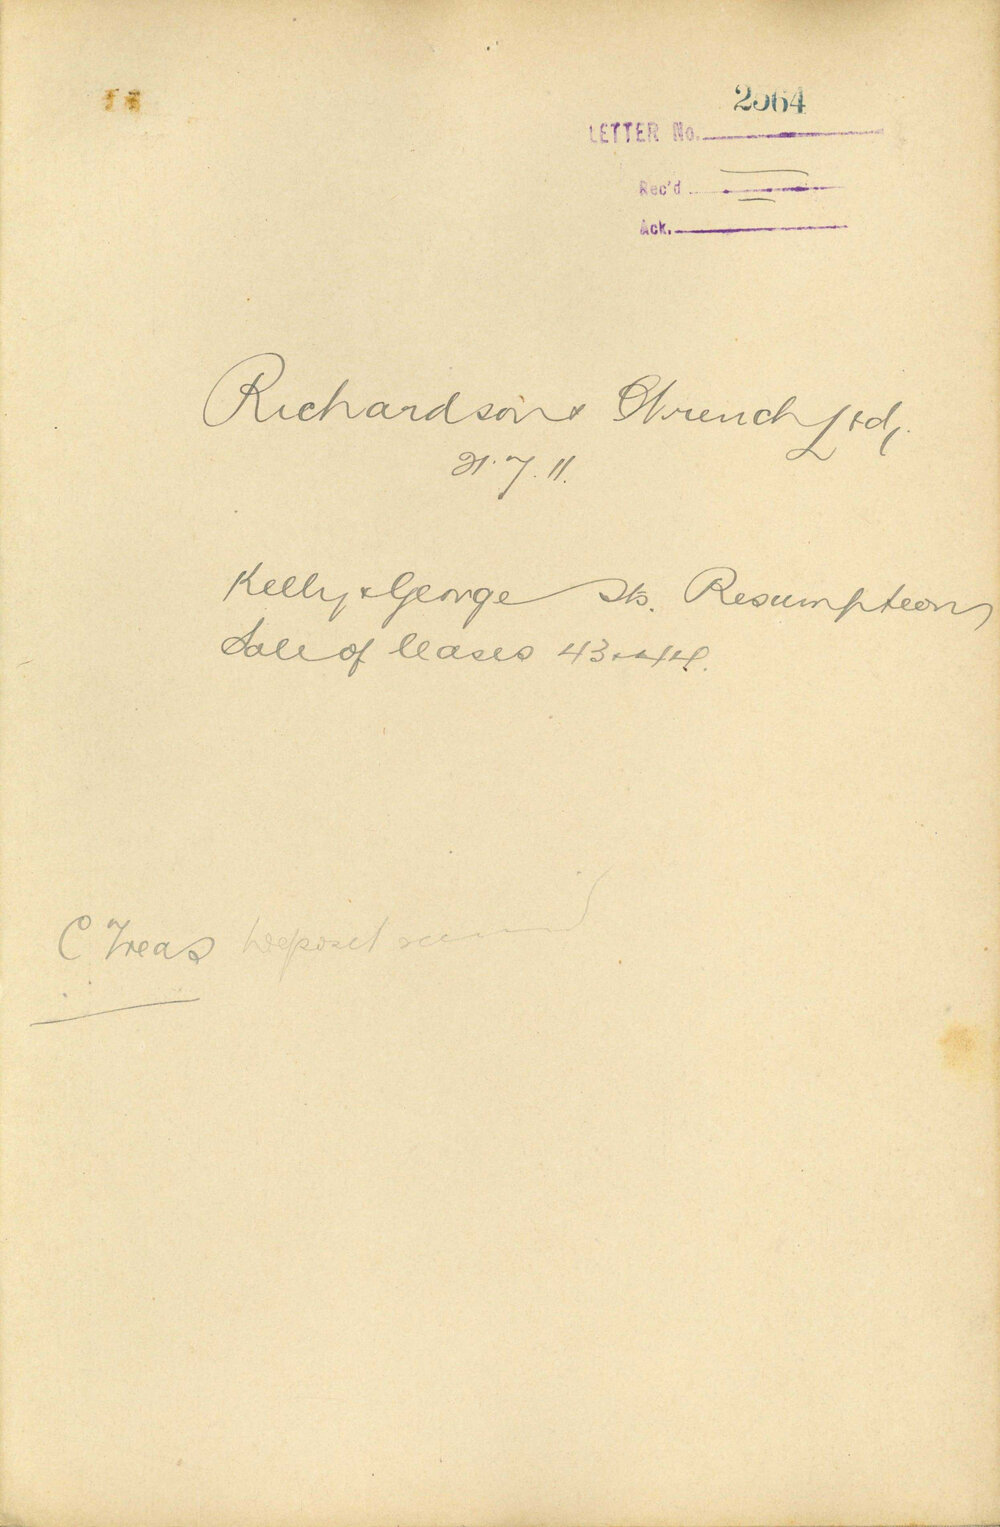 2564
LETTER No.
Rec'd
Ack.
Richardson & Wrench Ltd.
21.7.11.
Kelly & George Sts. Resumptions
Sale of leases 43 & 44.
C Treas Deposit